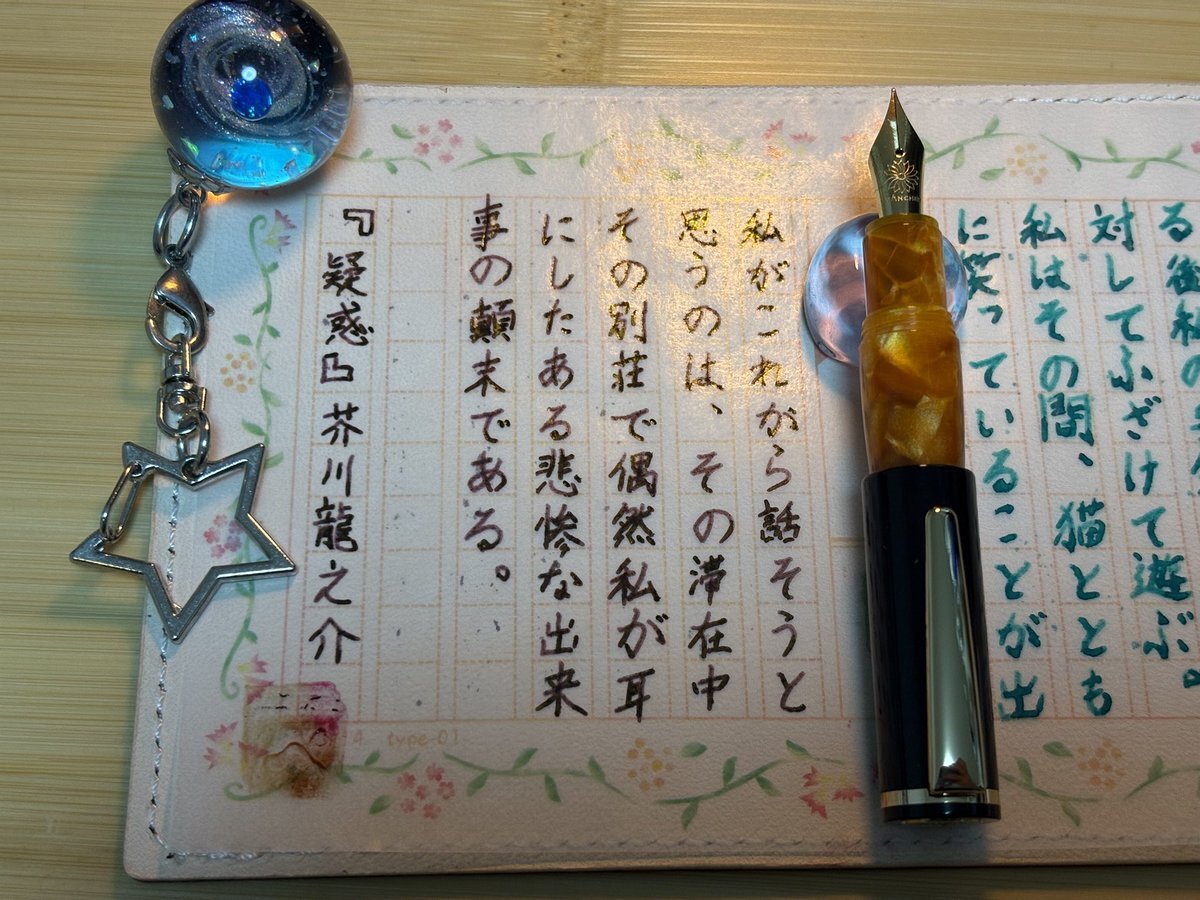 対してふざけて遊ぶ。
私はその間、猫とも
に笑っていることが出
私がこれから話そうと
思うのは、その滞在中
その別荘で偶然私が耳
にしたある悲惨な出来
事の顛末である。
『疑惑』芥川龍之介
type-01